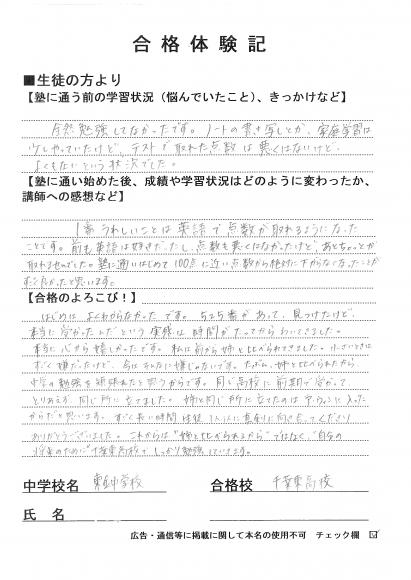 合格体験記
■生徒の方より
【塾に通う前の学習状況（悩んでいたこと）、きっかけなど】
全然勉強してなかったです。ノートの書き写しとか、家庭学習は
少しやっていたけど、テストで取れた点数は悪くはないけど、
よくもないという状況でした。
【塾に通い始めた後、成績や学習状況はどのように変わったか、
講師への感想など】
1番うれしいことは英語で点数が取れるようになった
ことです。前も英語は好きだったし、点数も悪くはなかったけど、あとちょっとが
取れませんでした。塾に通いはじめて100点に近い点数から絶対に下がらなくなったことが
すごく良かったと思います。
【合格のよろこび！】
はじめは、よくわからなかったです。525番があって、見つけたけど、
本当に受かったんだという実感は時間がたってからわいてきました。
本当に心から嬉しかったです。私は前から姉と比べられてきました。小さいときは
すごく嫌だったけど、今はそんなに嫌じゃないです。たぶん、姉と比べられたから、
中学の勉強を頑張れたと思うからです。同じ高校に前期で受かって、
とりあえず同じ所に立てました。姉と同じ所に立てたのは
からだと思います。すごく長い時間 生徒1人1人に真剣に向き合ってくださり
ありがとうございました。これからは"姉と比べられるから"ではなく、"自分の
将来のために"千葉東高校でしっかり勉強していきます。
中学校名 中学校 合格校 千葉東高校
氏 名
広告・通信等に掲載に関して本名の使用不可 チェック欄 ☑